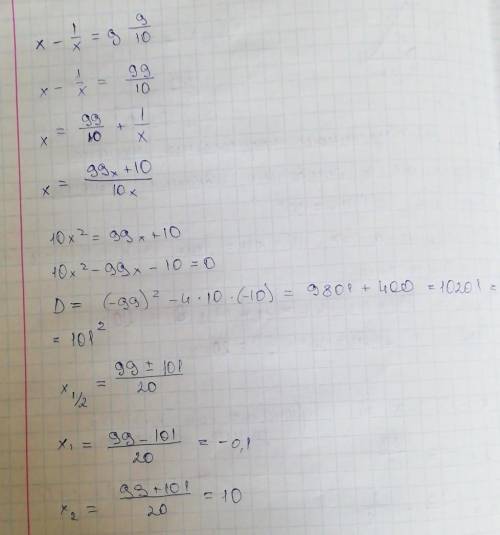 x - 1/x = 9 9/10
x - 1/x = 99/10
x = 99/10 + 1/x
x = (99x + 10)/10x
10x² = 99x + 10
10x² - 99x - 10 = 0
D = (-99)² - 4 · 10 · (-10) = 9801 + 400 = 10201 =
= 101²
x₁/₂ = (99 ± 101)/20
x₁ = (99 - 101)/20 = -0,1
x₂ = (99 + 101)/20 = 10